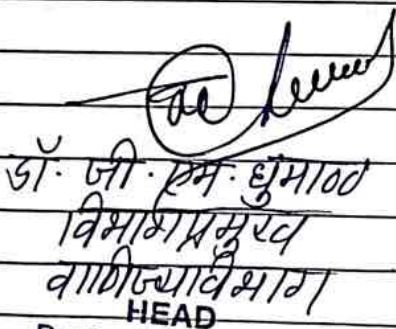 डॉ. जी. एम. धुमाळ
विभागप्रमुख
वाणिज्यविभाग
HEAD